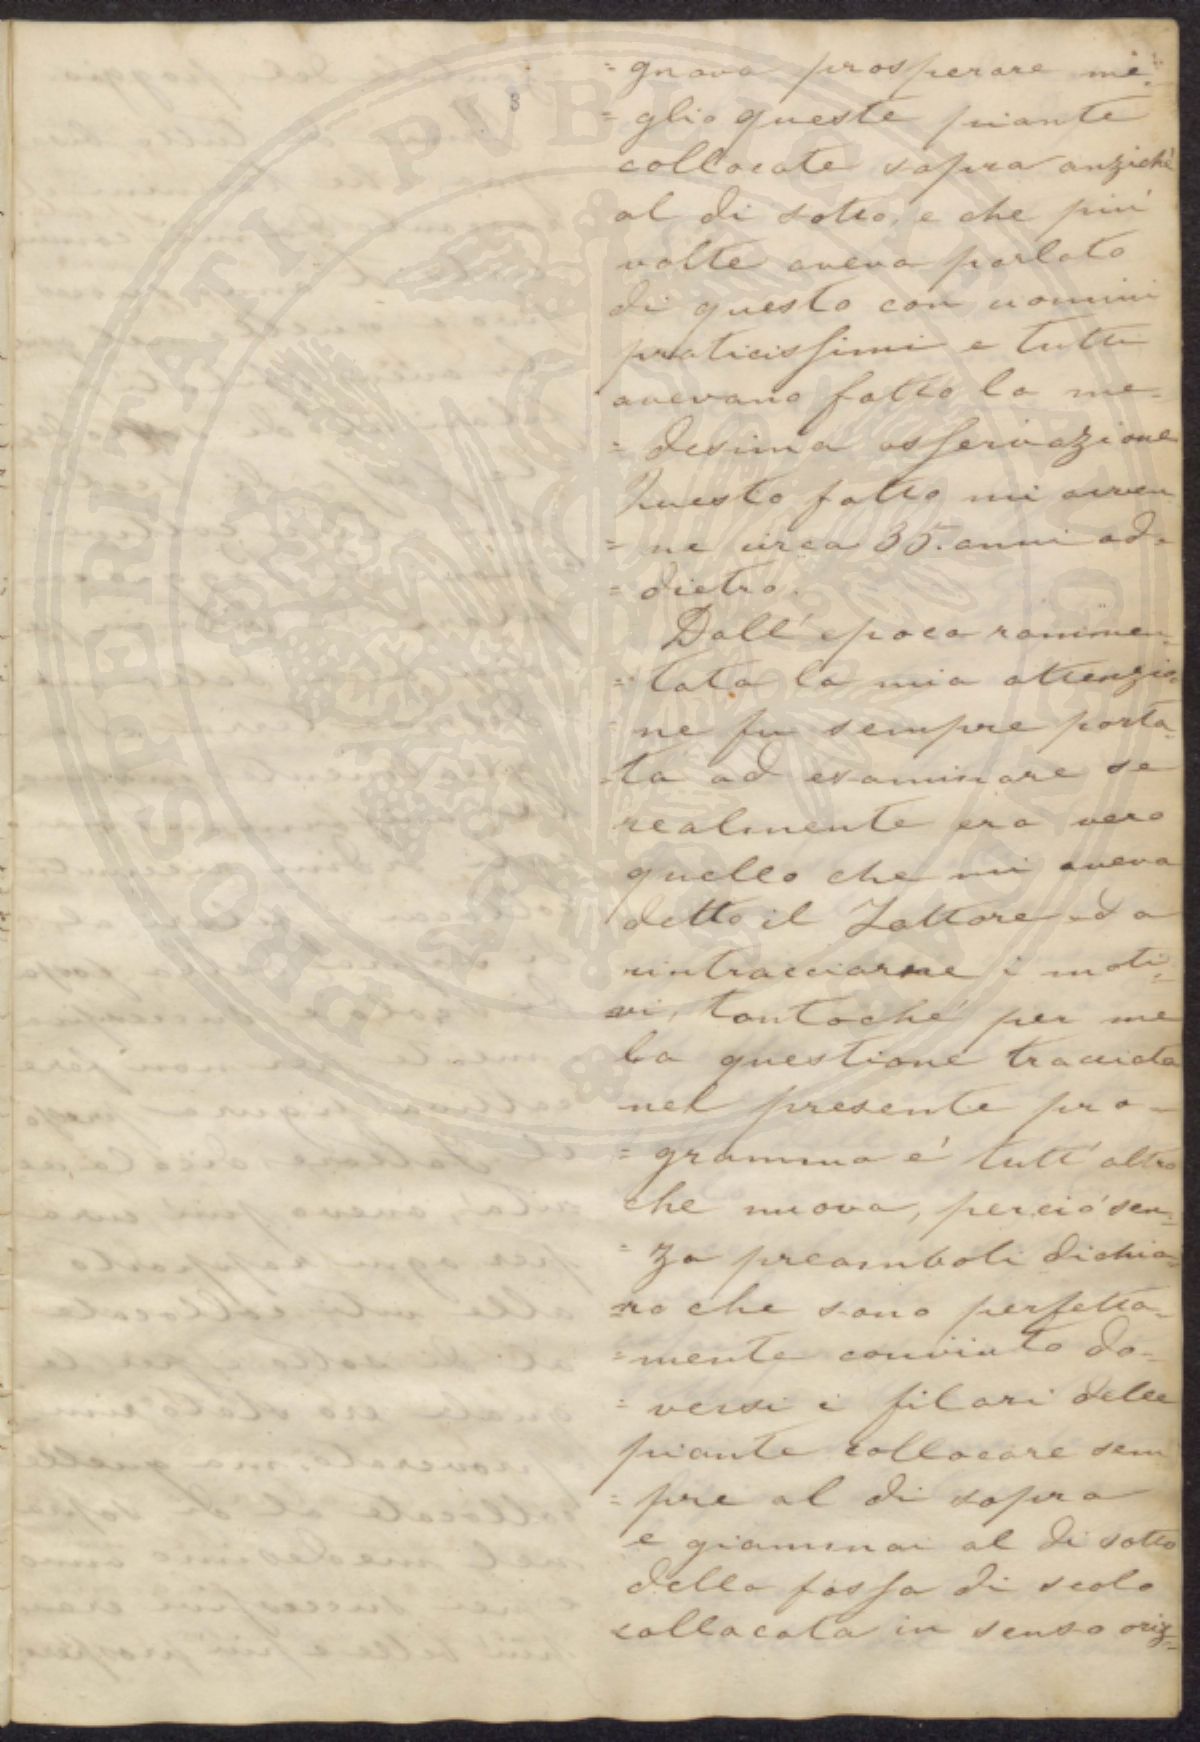 3
= gnava prosperare me=
= glio queste piante
collocate sopra anziché
al di sotto, e che piú
volte aveva parlato
di questo con uomini
praticissimi e tutti
avevano fatto la me=
= desima osservazione
Questo fatto mi avven
= ne circa 35. anni ad=
= dietro.
Dall'epoca rammen=
= tata la mia attenzio=
= ne fu sempre porta=
= ta ad esaminare se
realmente era vero
quello che mi aveva
detto il Fattore ed a
rintracciarne i moti=
vi, tantoché per me
la questione tracciata
nel presente pro=
= gramma é tutt'altro
che nuova, perció sen=
= za preamboli dichia=
=ro che sono perfetta=
=mente convinto do=
= versi i filari delle
piante collocare sem
= pre al di sopra
e giammai al di sotto
della fossa di scolo
collocata in senso oriz=
PROSPERITATI PVBLICAE